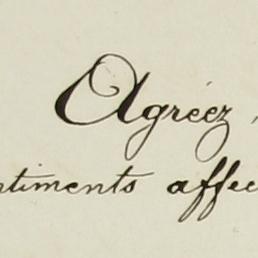 Agréez,
ntiments affec